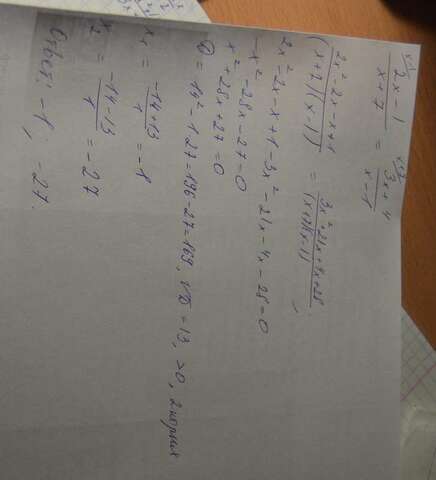 x-1) (2x-1)/(x+7) = x+7) (3x+4)/(x-1)
(2x²-2x-x+1)/((x+7)(x-1)) = (3x²+21x+4x+28)/((x+7)(x-1)),
2x²-2x-x+1-3x²-21x-4x-28=0
-x²-28x-27=0
x²+28x+27=0
D=14²-1·27=196-27=169, √D=13, >0, 2 корня
x₁ = (-14+13)/1 = -1
x₂ = (-14-13)/1 = -27
Ответ: -1, -27.